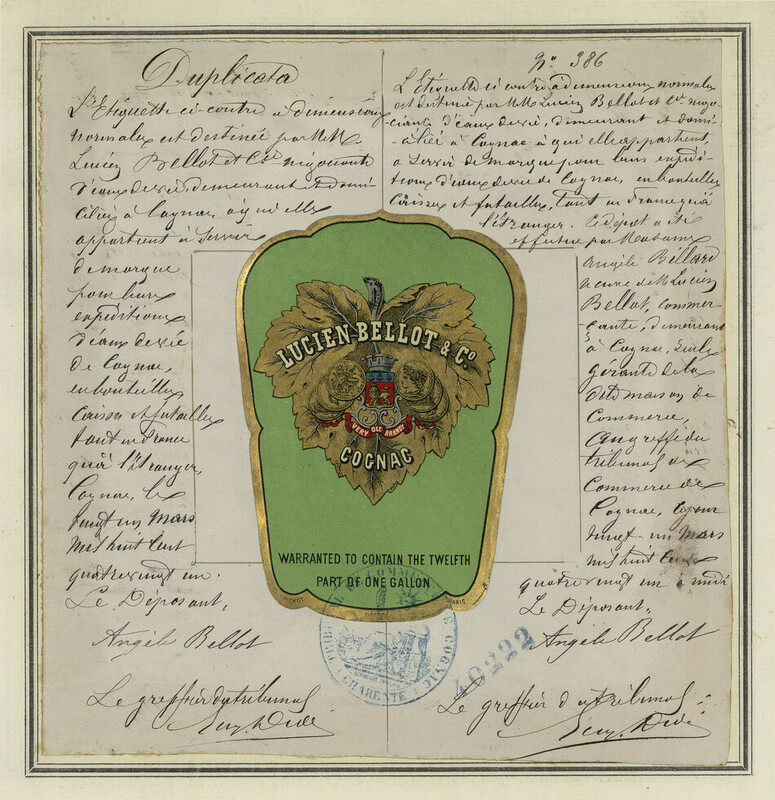 Duplicata
L'Etiquette ci-contre à dimensions
normales est destinée par M.M.
Lucien Bellot et Cie négociants
d'eaux de vie, demeurant et domi-
ciliés à Cognac, à qui elle
appartient à servir
de marque
pour leurs
expéditions
d'eaux de vie
de Cognac,
en bouteilles
caisses et futailles
tant en France
qu'à l'étranger,
Cognac, le
vingt un Mars
mil huit cent
quatre vingt un.
Le Déposant,
Angèle Bellot
Le greffier du tribunal
No. 386
L'Etiquette ci contre à dimensions normales
est destinée par M.M. Lucien Bellot et Cie négo-
ciants d'eaux de vie, demeurant et domi-
ciliés à Cognac à qui elle appartient,
à servir de marque pour leurs expédi-
tions d'eaux de vie de Cognac, en bouteilles
caisses et futailles, tant en France qu'à
l'étranger. Ce dépôt a été
effectué par Madame
Angèle Billard
veuve de M. Lucien
Bellot, commer-
çante, demeurant
à Cognac, seule
gérante de la
dite maison de
Commerce,
au greffe du
tribunal de
Commerce de
Cognac, le jour
vingt-un Mars
mil huit cent
quatre vingt un à midi
Le Déposant,
Angèle Bellot
Le greffier du tribunal
LUCIEN-BELLOT & Co
VERY OLD BRANDY
COGNAC
WARRANTED TO CONTAIN THE TWELFTH
PART OF ONE GALLON
PARIS
COGNAC
CHARENTE
40222